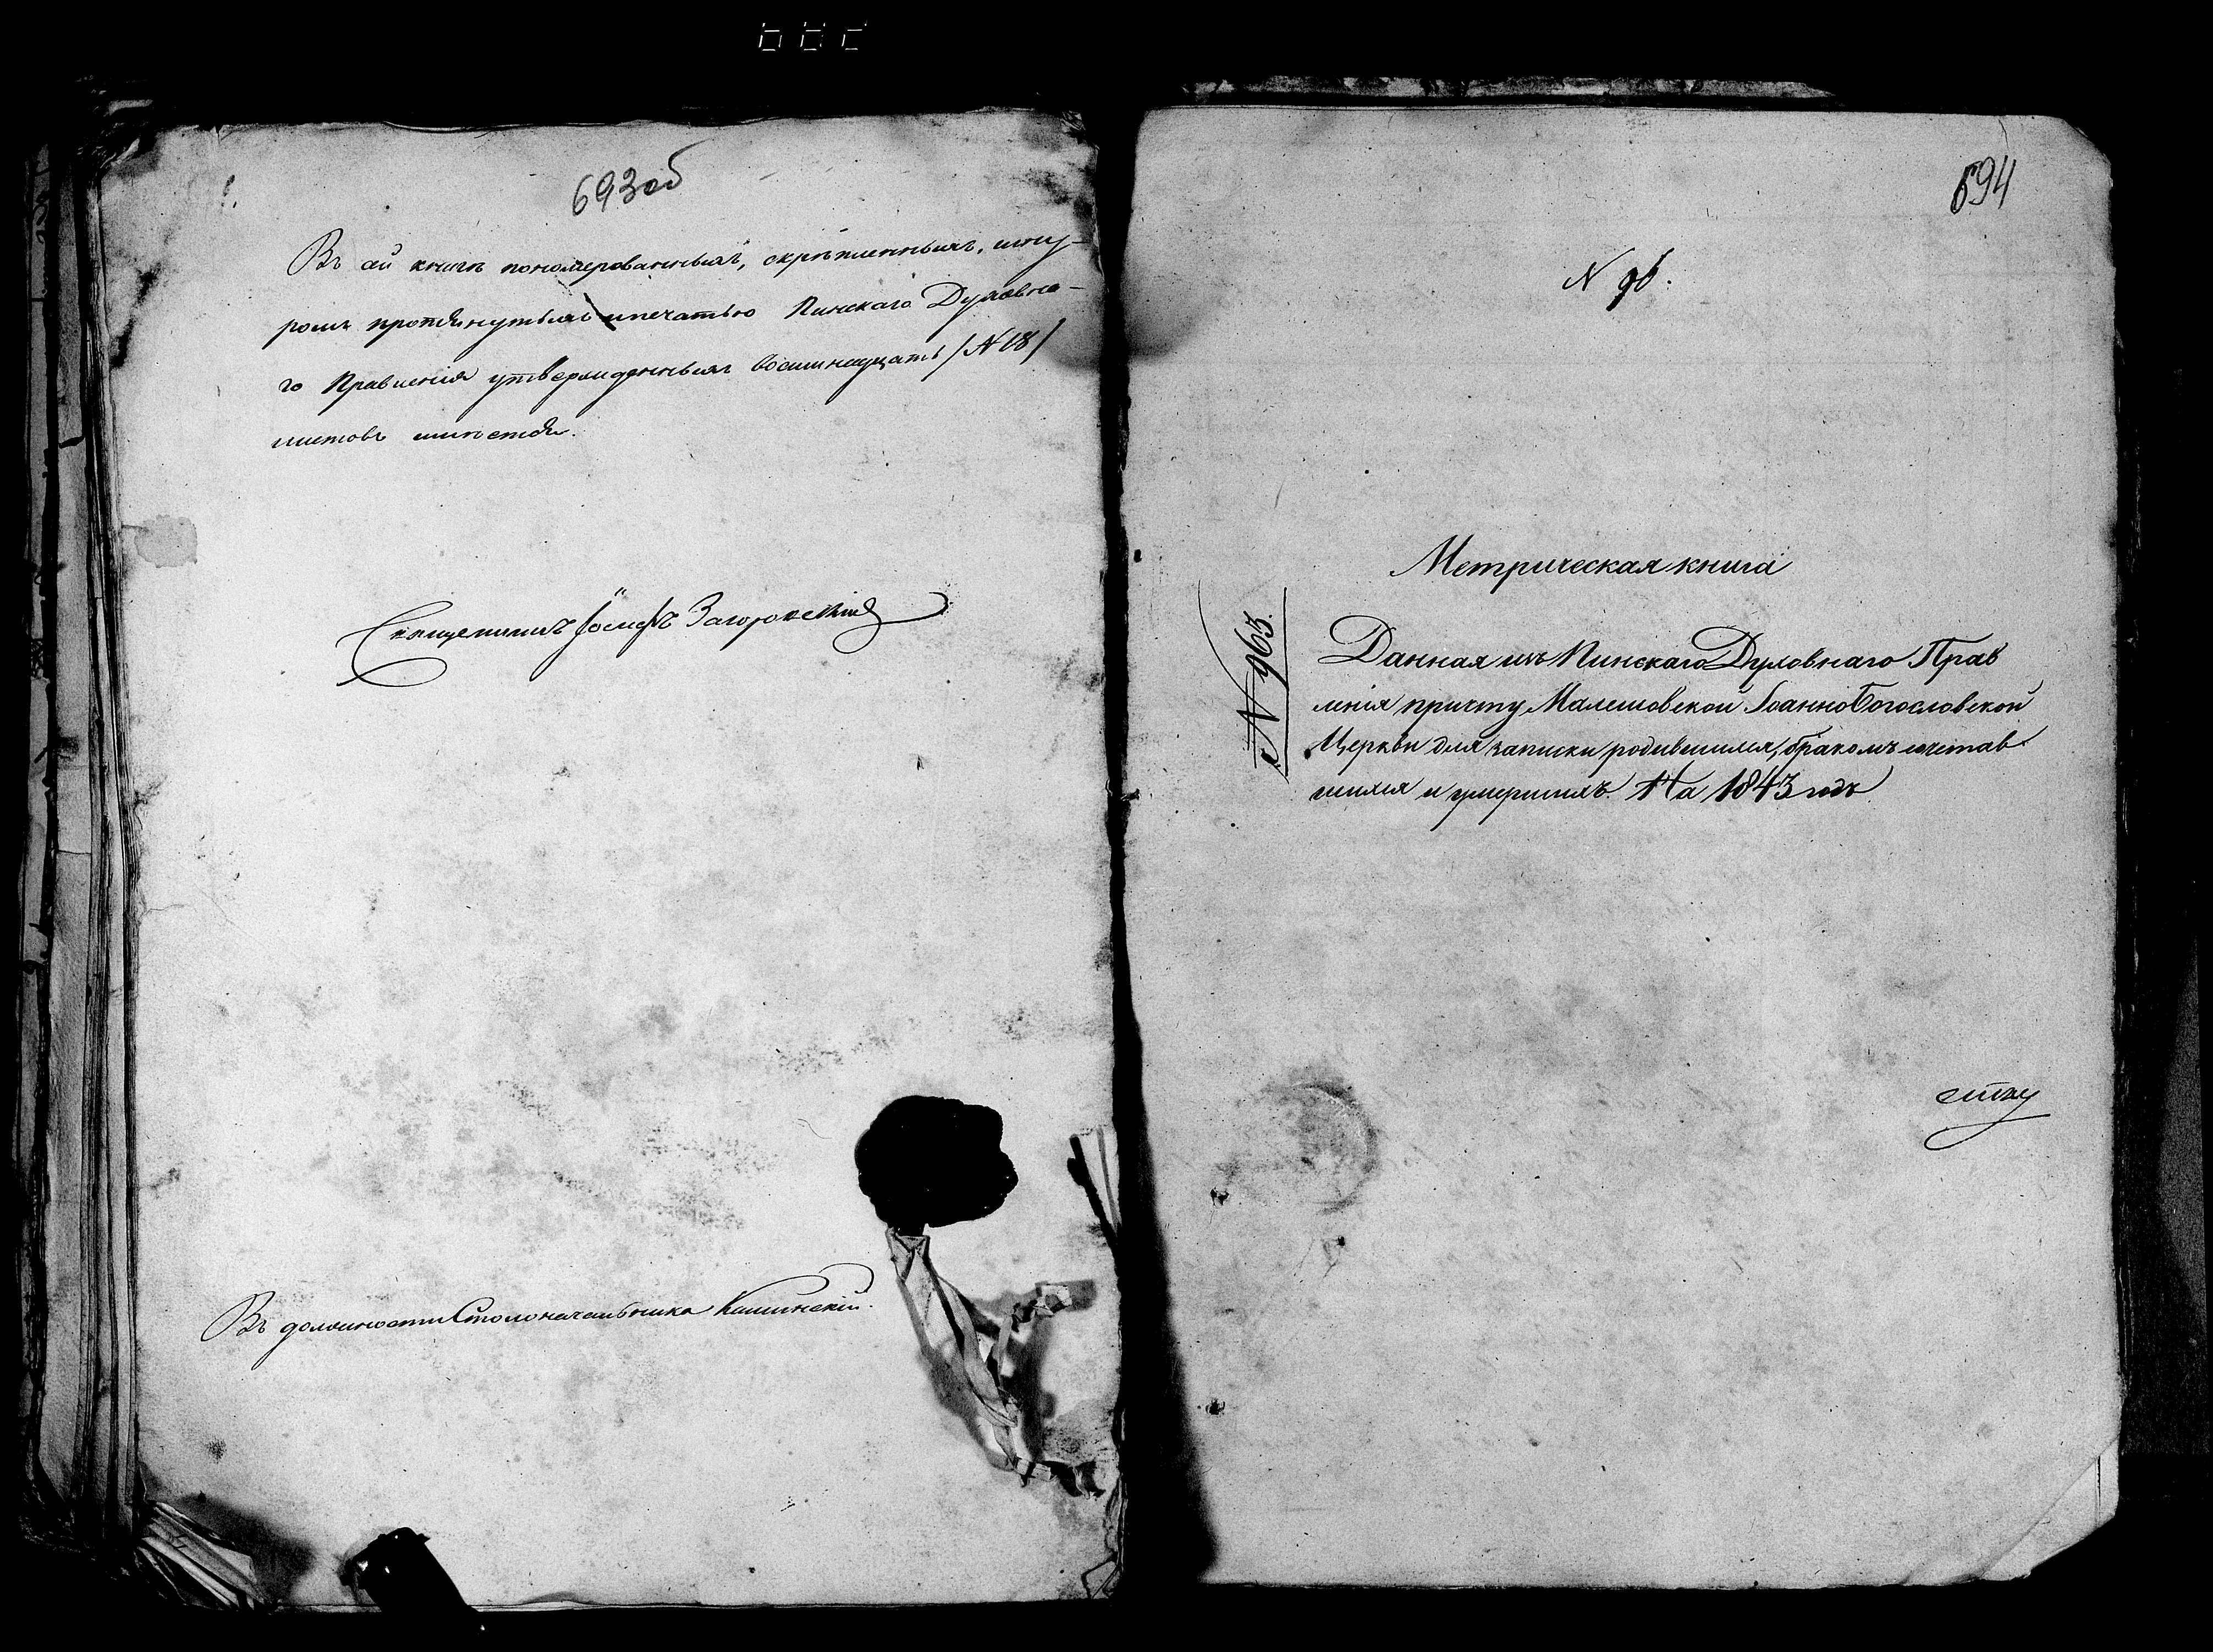 693 об
Въ сей книгѣ пономерованныхъ, скрѣпленныхъ, шну-
ромъ протянутыхъ и печатью Пинскаго Духовна-
го Правленія утвержденныхъ восимнадцать / N 18 /
листовъ
Священникъ Іосифъ Загоровскій
Въ должности Столоначальника Калинскій.
694
N 96.
Метрическая книга
N 963.
Данная изъ Пинскаго Духовнаго Прав
ленія причту Малешовской Іоанно Богословской
Церкви для записки родившихся, бракомъ сочетав
шихся и умершихъ. На 1843 годъ